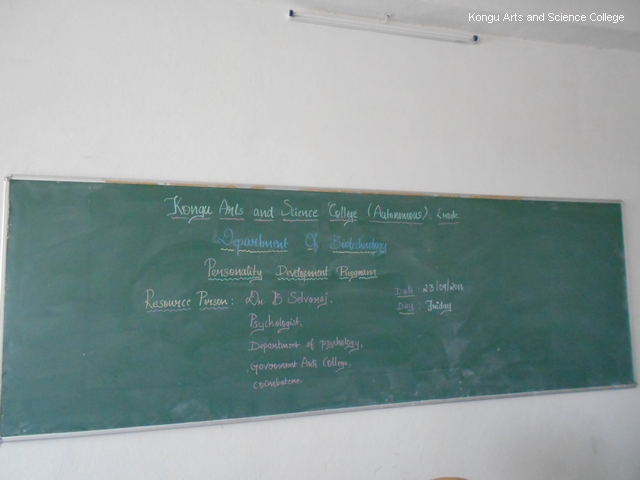 Kongu Arts and Science College
Kongu Arts and Science College (Autonomous), Erode
Department Of Biotechnology
Personality Development Program
Resource Person : Dr. B Selvaraj,
Date :
Day : Friday
Psychologist,
Department of psychology,
Government Arts College,
Coimbatore.